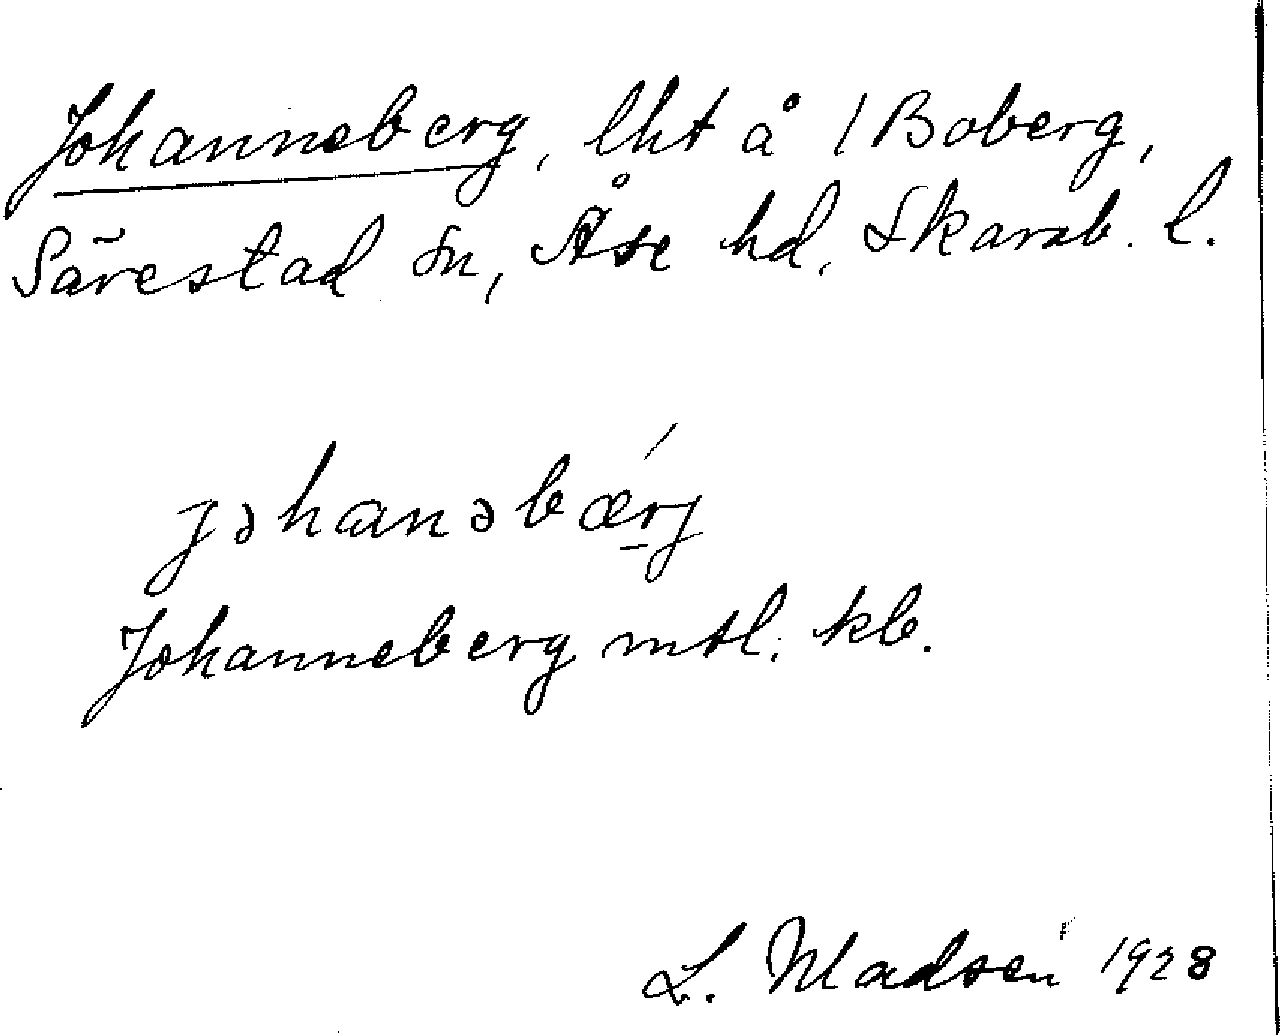 Johanneberg, lht å 1 Boberg,
Särestad sn, Åse hd, Skarab. l.
jəhanəbǽrj
Johanneberg mtl. kb.
L. Madsen 1928